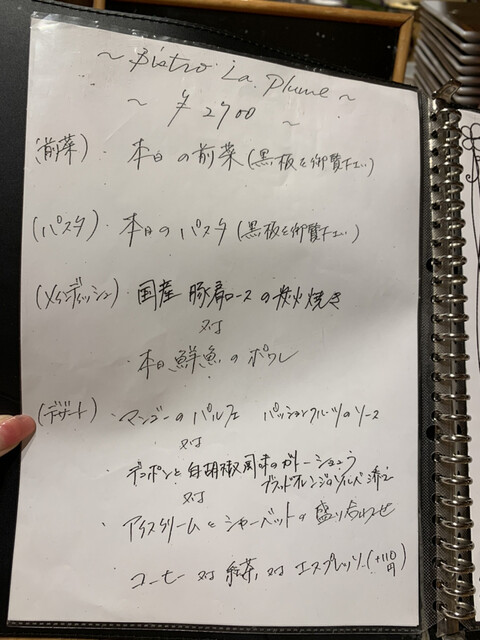 ~ Bistro La Plume ~
~ ¥2900 ~
(前菜) ・本日の前菜(黒板を御覧下さい)
(パスタ) ・本日のパスタ(黒板を御覧下さい)
(メインディッシュ) ・国産豚肩ロースの炭火焼き
又は
・本日鮮魚のポワレ
(デザート) ・マンゴーのパルフェ パッションフルーツのソース
又は
・デコポンと白胡椒風味のガトーショコラ
ブラッドオレンジのソルベ添え
又は
・アイスクリームとシャーベットの盛り合わせ
・コーヒー又は紅茶又はエスプレッソ(+110円)